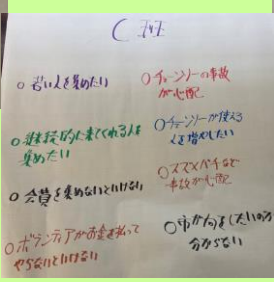 C班
○若い人を集めたい
○継続的に来てくれる人を
集めたい
○会費を集めないといけない
○ボランティアがお金を払って
やらないといけない
○チェーンソーの事故
が心配
○チェーンソーが使える
人を増やしたい
○スズメバチなど
事故が心配
○市が何をしたいのか
分からない